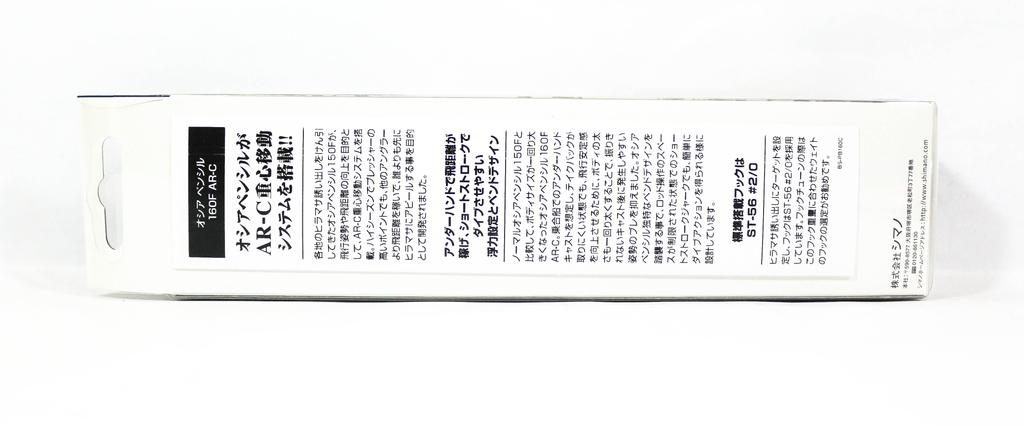 オシア ペンシル
160F AR-C
オシアペンシルが
AR-C重心移動
システムを搭載!!
各地のヒラマサ誘い出しをけん引
してきたオシアペンシル150Fが、
飛行姿勢や飛距離の向上を目的と
して、AR-C重心移動システムを搭
載。ハイシーズンでプレッシャーの
高いポイントでも、他のアングラー
より飛距離を稼いで、誰よりも先に
ヒラマサにアピールする事を目的
として開発されました。
アンダーハンドで飛距離が
稼げ、ショートストロークで
ダイブさせやすい
浮力設定とベンドデザイン
ノーマルオシアペンシル150Fと
比較して、ボディサイズが一回り大
きくなったオシアペンシル160F
AR-C。乗合船でのアンダーハンド
キャストを想定し、テイクバックが
取りにくい状態でも、飛行安定感
を向上させるために、ボディの太
さも一回り太くすることで、振りき
れないキャスト後に発生しやすい
姿勢のブレを抑えました。オシア
ペンシル独特なベンドデザインを
踏襲する事で、ロッド操作のスペー
スが制限された状態でのショー
トストロークジャークでも、簡単に
ダイブアクションを得られる様に
設計しています。
標準搭載フックは
ST-56 #2/0
ヒラマサ誘い出しにターゲットを設
定し、フックはST-56 #2/0を採用
しています。フックチューンの際は
このフック重量に合わせたウェイト
のフックの選定がお勧めです。
株式会社シマノ
本社:〒590-8577 大阪府堺市堺区老松町3丁77番地
0120-861130
シマノホームページアドレス:http://www.shimano.com